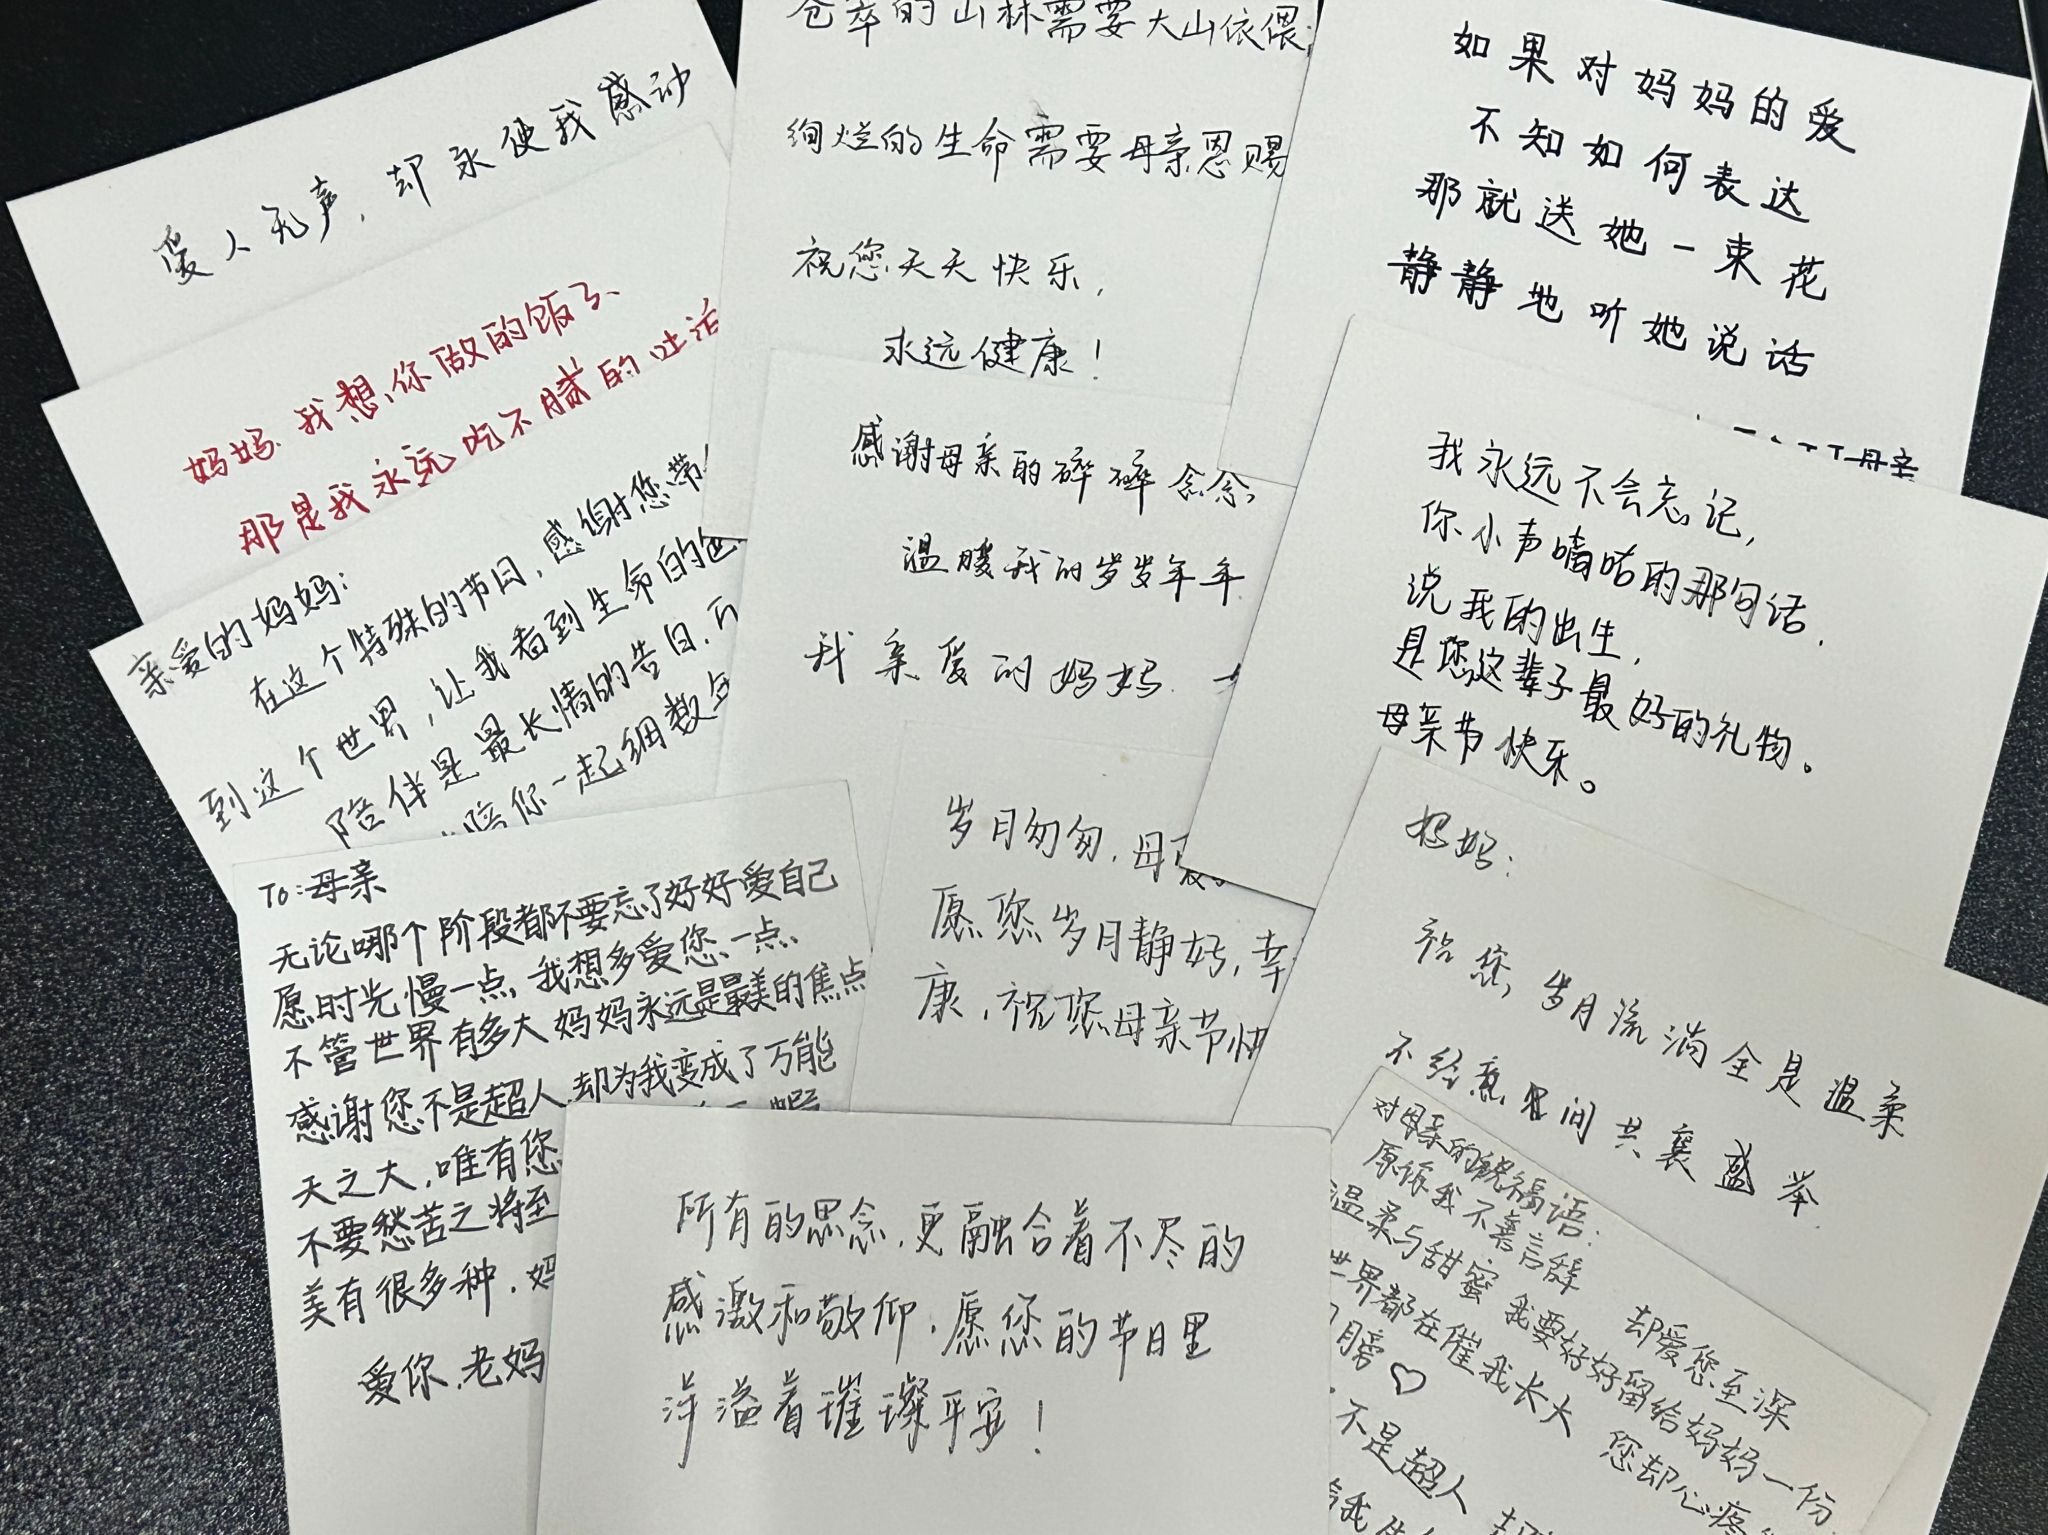 爱人无声，却永使我感动
妈妈、我想，你做的饭了、
那是我永远吃不腻的吐活
亲爱的妈妈：
在这个特殊的节日，感谢您带
到这个世界，让我看到生命的色
陪伴是最长情的告白，
陪你一起细数
To：母亲
无论哪个阶段都不要忘了好好爱自己
愿时光慢一点，我想多爱您一点、
不管世界有多大 妈妈永远是最美的焦点
感谢您不是超人，却为我变成了万能
天之大，唯有您
不要愁苦之将至
美有很多种，妈
爱你，老妈
仓卒的山林需要大山依偎；
绚烂的生命需要母亲恩赐
祝您天天快乐，
永远健康！
感谢母亲的碎碎念念，
温暖我的岁岁年年
我亲爱的妈妈
岁月匆匆，母
愿您岁月静好，幸
康，祝您母亲节快
所有的思念，更融合着不尽的
感激和敬仰，愿您的节日里
洋溢着璀璨平安！
如果对妈妈的爱
不知如何表达
那就送她一束花
静静地听她说话
母亲
我永远不会忘记，
你小声嘀咕的那句话，
说我的出生，
是您这辈子最好的礼物。
母亲节快乐。
妈妈：
祝您，岁月流淌全是温柔
不经意间共襄盛举
对母亲的祝福语：
原谅我不善言辞 却爱您至深
温柔与甜蜜 我要好好留给妈妈一份
世界都在催我长大 您却心疼
膀♡
不是超人 却
给我